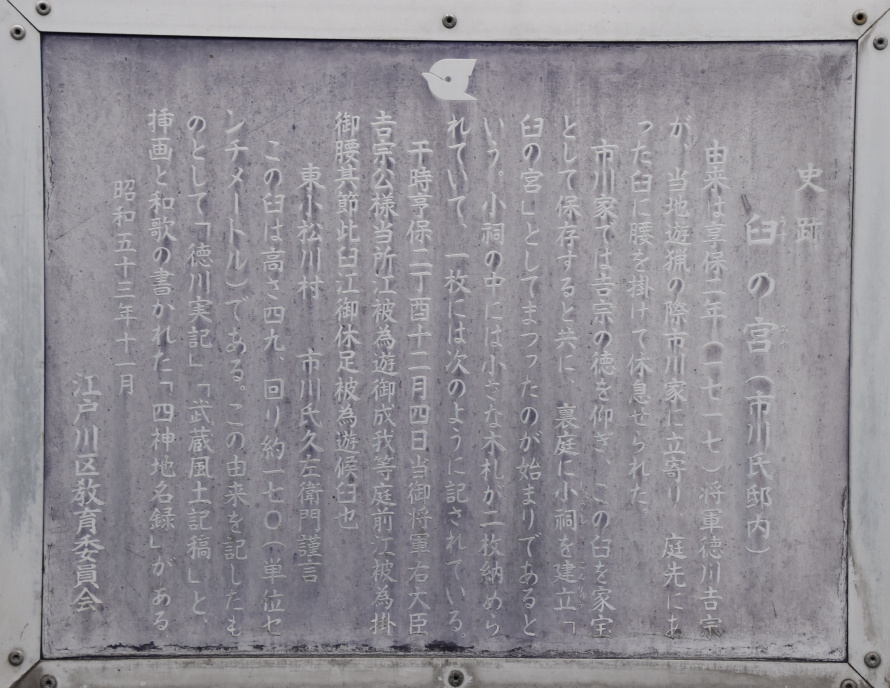 史跡
臼の宮（市川氏邸内）
由来は享保二年（一七一七）将軍徳川吉宗
が、当地遊猟の際市川家に立寄り　庭先にあ
った臼に腰を掛けて休息せられた。
市川家では吉宗の徳を仰ぎ、この臼を家宝
として保存すると共に、裏庭に小祠を建立「
臼の宮」としてまつったのが始まりであると
いう。小祠の中には小さな木札が二枚納めら
れていて、一枚には次のように記されている。
干時享保二丁酉十二月四日当御将軍右大臣
吉宗公様当所江被為遊御成我等庭前江被為掛
御腰其節此臼江御休足被為遊候臼也
東小松川村　市川氏久左衛門謹言
この臼は高さ四九、回り約一七〇（単位セ
ンチメートル）である。この由来を記したも
のとして「徳川実記」「武蔵風土記稿」と、
挿画と和歌の書かれた「四神地名録」がある
昭和五十三年十一月
江戸川区教育委員会